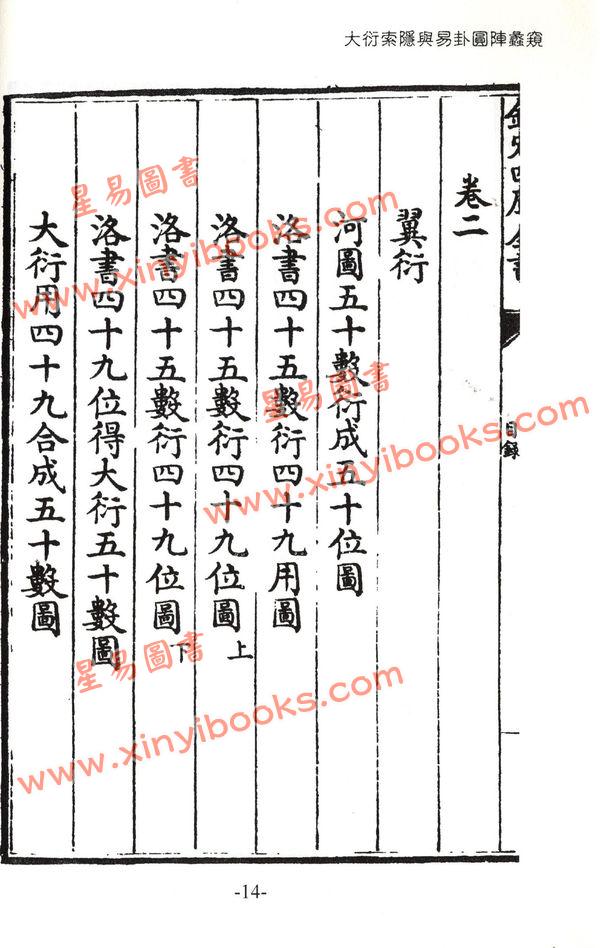 大衍索隱與易卦圓陣蠡窺
卷二
翼衍
河圖五十數衍成五十位圖
洛書四十五數衍四十九用圖
洛書四十五數衍四十九位圖上
洛書四十五數衍四十九位圖下
洛書四十九位得大衍五十數圖
大衍用四十九合成五十數圖
目錄
-14-
星易圖書
www.xinyibooks.com
星易圖書
www.xinyibooks.com
星易圖書
www.xinyibooks.com